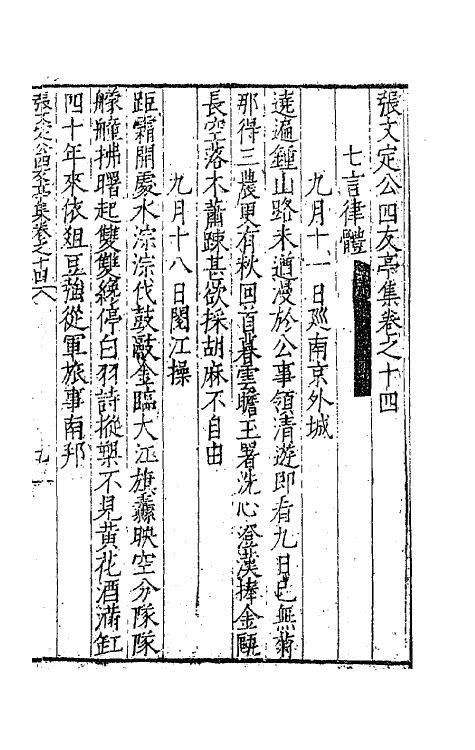 張文定公四友亭集卷之十四
七言律體
九月十一日廵南京外城
遶遍鍾山路未遒漫於公事領清遊即看九日已無菊
那得三農更有秋回首暮雲瞻玉署洗心澄漢捧金甌
長空落木蕭踈甚欲採胡麻不自由
九月十八日閱江操
距霜開處水淙淙伐鼓敲金臨大江旗纛映空分隊隊
艨艟拂曙起雙雙纔停白羽詩摐槊不見黃花酒滿缸
四十年來依俎豆強從軍旅事南邦
張文定公四友亭集卷之十四 九